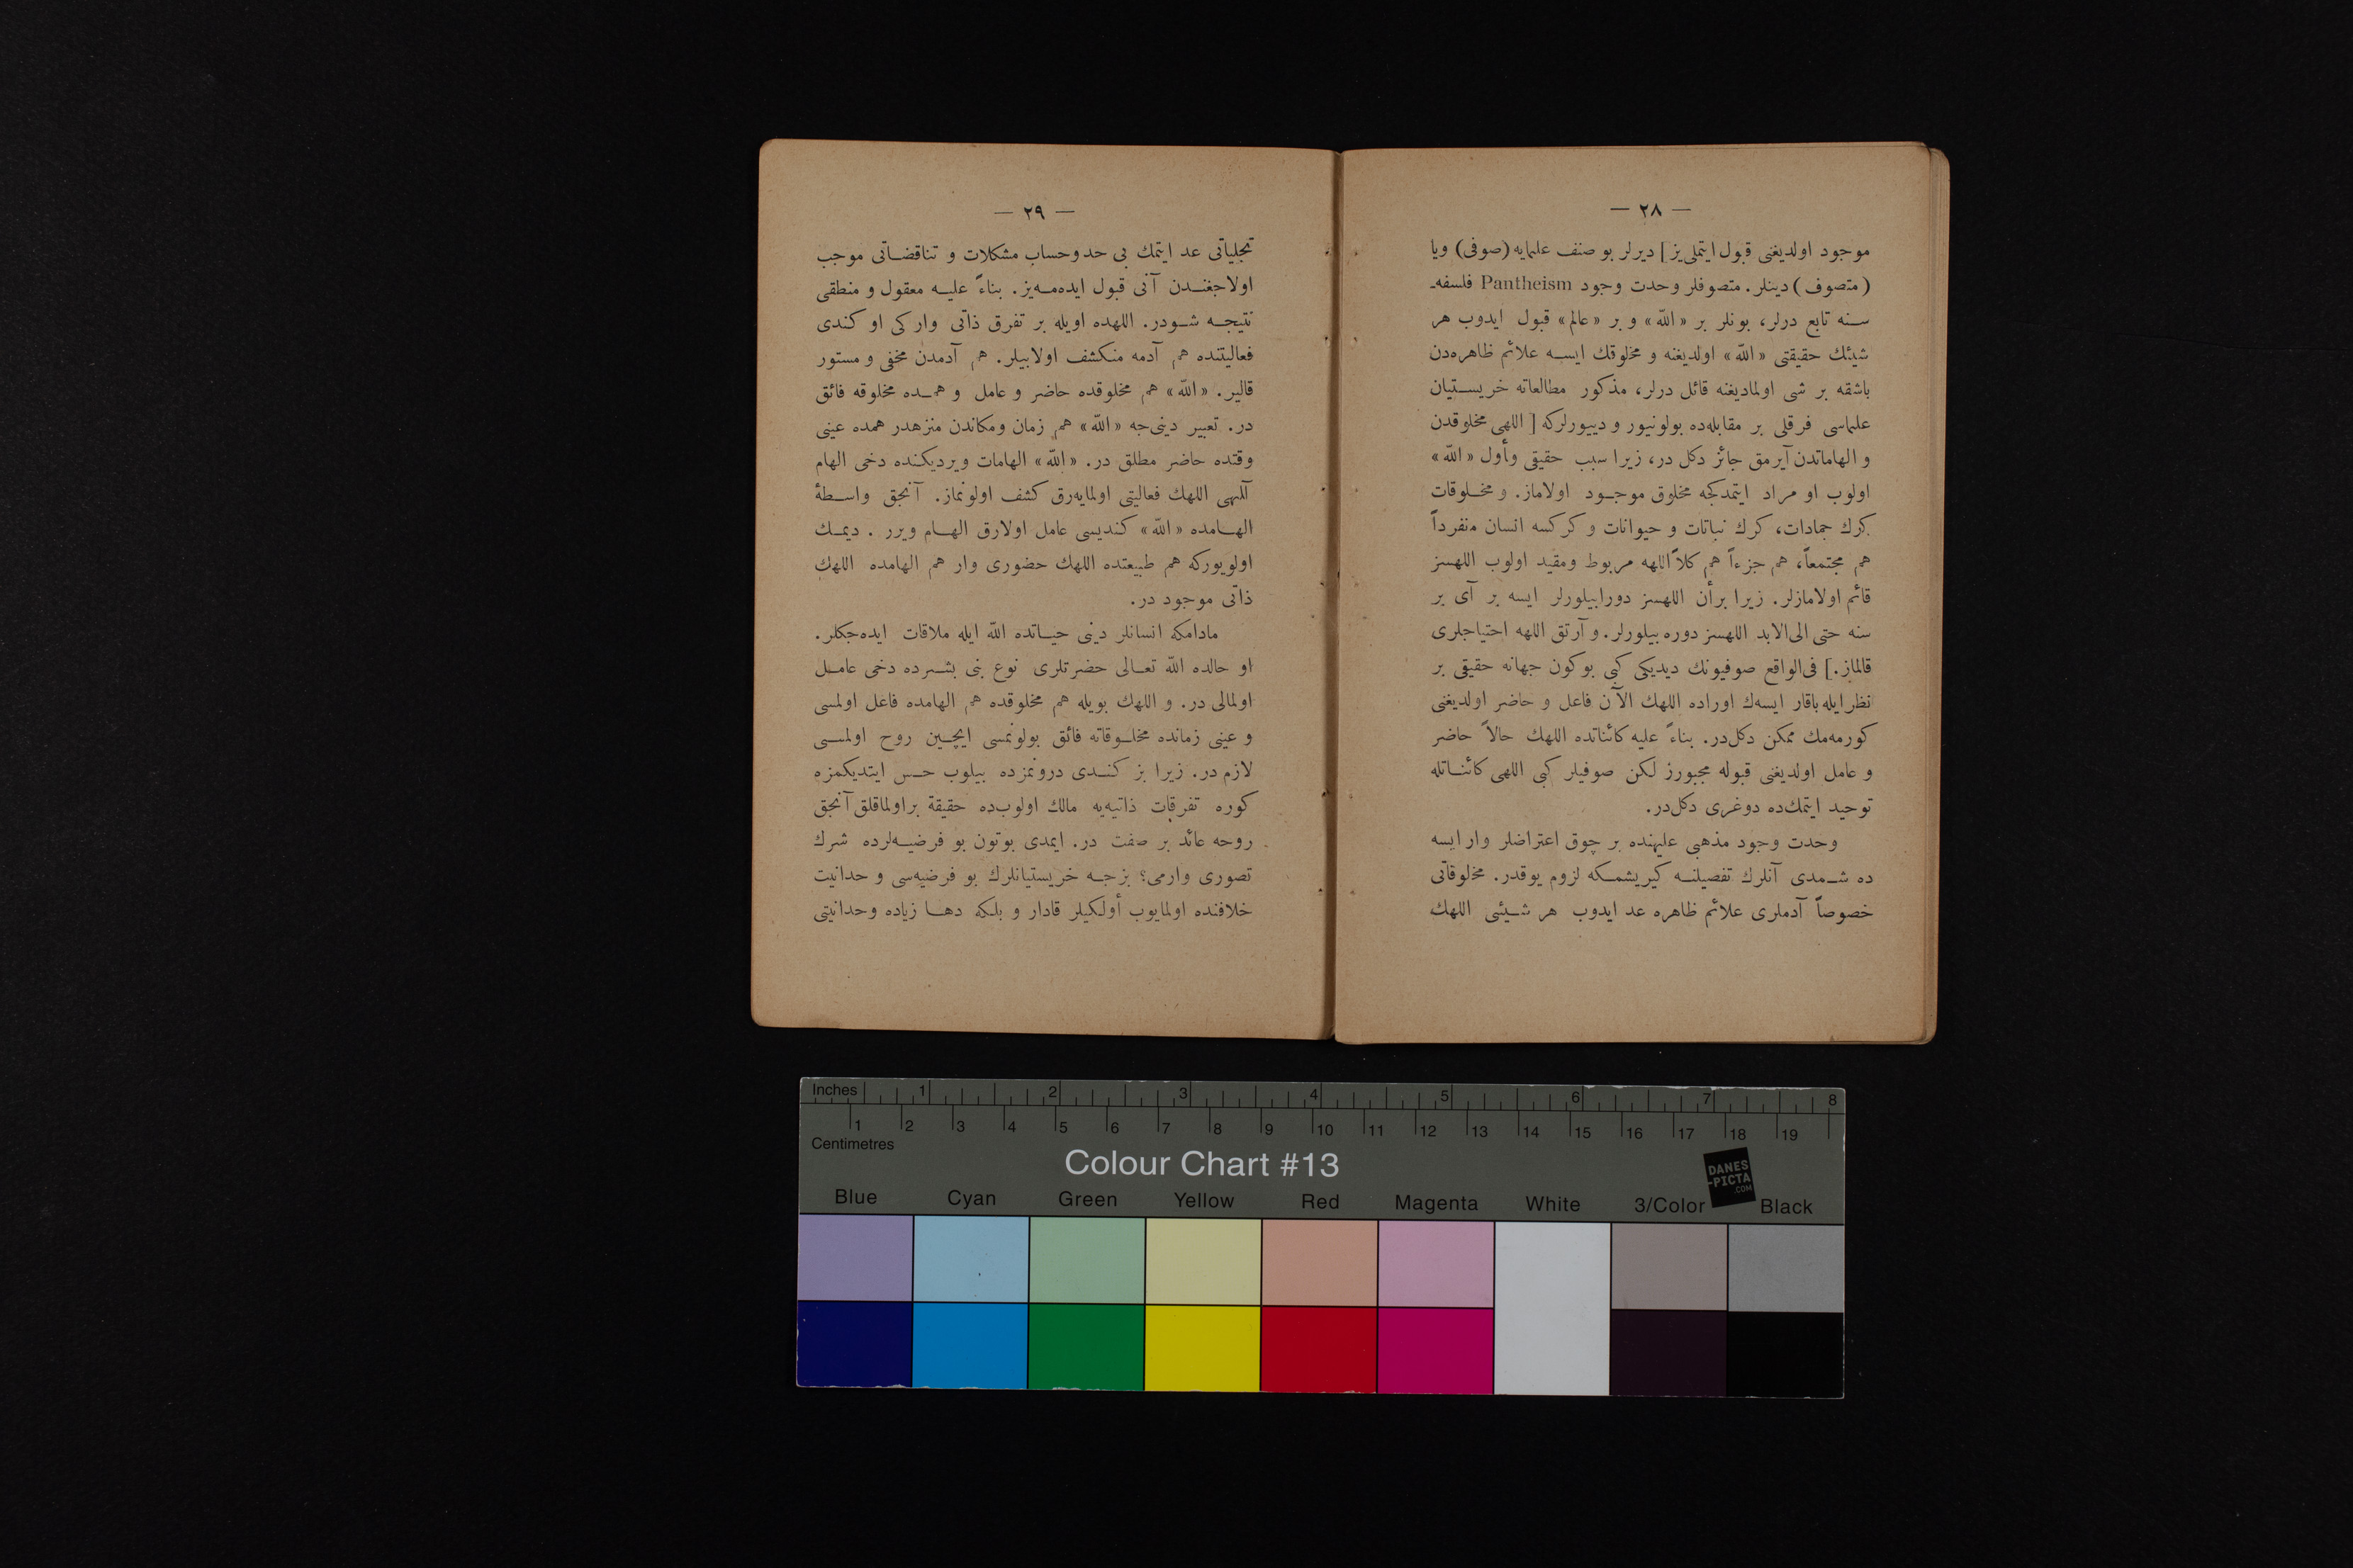 — ٢٨ —
موجود اولدیغنی قبول ایتملی‌یز] دیرلر بو صنف علمایه (صوفی) ویا
(متصوف) دینلر. متصوفلر وحدت وجود Pantheism فلسفه‌ـ
سـنه تابع درلر، بونلر بر «الله» و بر «عالم» قبول ایدوب هر
شیئك حقیقتی «الله» اولدیغنه و مخلوقك ایسـه علائم ظاهره‌دن
باشقه بر شی اولمادیغنه قائل درلر، مذکور مطالعاته خریسـتیان
علماسی فرقلی بر مقابله‌ده بولونیور و دییورلرکه [اللهی مخلوقدن
و الهاماتدن آیرمق جائز دکل در، زیرا سبب حقیقی وأول «الله»
اولوب او مراد ایتمدکجه مخلوق موجـود اولاماز. و مخـلوقات
کرك جمادات، کرك نباتات و حیوانات و کرکسه انسان منفرداً
هم مجتمعاً، هم جزءاً هم کلاً اللهه مربوط ومقید اولوب اللهسز
قائم اولامازلر. زیرا برأن اللهسز دورابیلورلر ایسه بر آی بر
سنه حتی الی‌الابد اللهسز دوره بیلورلر. و آرتق اللهه احتیاجلری
قالماز.] فی‌الواقع صوفیونك دیدیکی کبی بوکون جهانه حقیقی بر
نظر ایله باقار ایسه‌ك اوراده اللهك الآن فاعل و حاضر اولدیغنی
کورمه‌مك ممکن دکل‌در. بناءً علیه کائناتده اللهك حالاً حاضر
و عامل اولدیغنی قبوله مجبورز لکن صوفیلر کبی اللهی کائنـاتله
توحید ایتمك‌ده دوغری دکل‌در.
وحدت وجود مذهبی علیهنده بر چوق اعتراضلر وار ایسه
ده شـمدی آنلرك تفصیلنـه کیریشمـکه لزوم یوقدر. مخلوقاتی
خصوصاً آدملری علائم ظاهره عد ایدوب هر شـیئی اللهك
— ٢٩ —
تجلیاتی عد ایتمك بی حد وحساب مشکلات و تناقضـاتی موجب
اولاجغنـدن آنی قبول ایده‌مـه‌یز. بناءً علیـه معقول و منطقی
نتیجـه شـودر. اللهده اویله بر تفرق ذاتی وار کی او کندی
فعالیتنده هم آدمه منکشف اولابیلر. هم آدمدن مخفی و مستور
قالیر. «الله» هم مخلوقده حاضر و عامل و همـده مخلوقه فائق
در. تعبیر دینی‌جه «الله» هم زمان ومکاندن منزهدر همده عینی
وقتده حاضر مطلق در. «الله» الهامات ویردیکنده دخی الهام
آللهی اللهك فعالیتی اولمایه‌رق کشف اولونماز. آنجق واسـطهٔ
الهـامده «الله» کندیسی عامل اولارق الهـام ویرر . دیمـك
اولویورکه هم طبیعتده اللهك حضوری وار هم الهامده اللهك
ذاتی موجود در.
مادامکه انسانلر دینی حیـاتده الله ایله ملاقات ایده‌جکلر.
او حالده الله تعـالی حضرتلری نوع بنی بشـرده دخی عامـل
اولمالی در. و اللهك بویله هم مخلوقده هم الهامده فاعل اولمسی
و عینی زمانده مخلـوقاته فائق بولونمسی ایچـین روح اولمسـی
لازم در. زیرا بز کنـدی درونمزده بیلوب حـس ایتدیکمزه
کوره تفرقات ذاتیه‌یه مالك اولوب‌ده حقیقة براولماقلق آنجق
روحه عائد بر صفت در. ایمدی بوتون بو فرضیـه‌لرده شرك
تصوری وارمی؟ بزجـه خریستیانلرك بو فرضیه‌سی و حدانیت
خلافنده اولمایوب أولکیلر قادار و بلکه دهـا زیاده وحدانیتی
Inches 1 2 3 4 5 6 7 8
1 2 3 4 5 6 7 8 9 10 11 12 13 14 15 16 17 18 19
Centimetres
Colour Chart #13
DANES
-PICTA
.COM
Blue Cyan Green Yellow Red Magenta White 3/Color Black